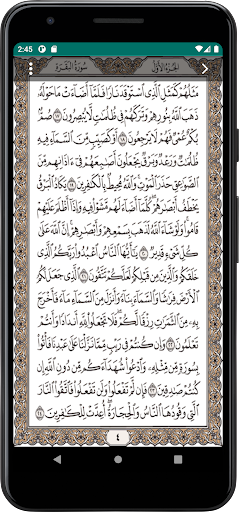 2:45
الجزء الأول
سورة البقرة
مَثَلُهُمْ كَمَثَلِ الَّذِي اسْتَوْقَدَ نَارًا فَلَمَّا أَضَاءَتْ مَا حَوْلَهُ
ذَهَبَ اللَّهُ بِنُورِهِمْ وَتَرَكَهُمْ فِي ظُلُمَاتٍ لَا يُبْصِرُونَ ١٧ صُمٌّ
بُكْمٌ عُمْيٌ فَهُمْ لَا يَرْجِعُونَ ١٨ أَوْ كَصَيِّبٍ مِنَ السَّمَاءِ فِيهِ
ظُلُمَاتٌ وَرَعْدٌ وَبَرْقٌ يَجْعَلُونَ أَصَابِعَهُمْ فِي آذَانِهِمْ مِنَ
الصَّوَاعِقِ حَذَرَ الْمَوْتِ وَاللَّهُ مُحِيطٌ بِالْكَافِرِينَ ١٩ يَكَادُ الْبَرْقُ
يَخْطَفُ أَبْصَارَهُمْ كُلَّمَا أَضَاءَ لَهُمْ مَشَوْا فِيهِ وَإِذَا أَظْلَمَ
عَلَيْهِمْ قَامُوا وَلَوْ شَاءَ اللَّهُ لَذَهَبَ بِسَمْعِهِمْ وَأَبْصَارِهِمْ إِنَّ اللَّهَ عَلَى
كُلِّ شَيْءٍ قَدِيرٌ ٢٠ يَا أَيُّهَا النَّاسُ اعْبُدُوا رَبَّكُمُ الَّذِي
خَلَقَكُمْ وَالَّذِينَ مِنْ قَبْلِكُمْ لَعَلَّكُمْ تَتَّقُونَ ٢١ الَّذِي جَعَلَ لَكُمُ
الْأَرْضَ فِرَاشًا وَالسَّمَاءَ بِنَاءً وَأَنْزَلَ مِنَ السَّمَاءِ مَاءً فَأَخْرَجَ
بِهِ مِنَ الثَّمَرَاتِ رِزْقًا لَكُمْ فَلَا تَجْعَلُوا لِلَّهِ أَنْدَادًا وَأَنْتُمْ
تَعْلَمُونَ ٢٢ وَإِنْ كُنْتُمْ فِي رَيْبٍ مِمَّا نَزَّلْنَا عَلَى عَبْدِنَا فَأْتُوا
بِسُورَةٍ مِنْ مِثْلِهِ وَادْعُوا شُهَدَاءَكُمْ مِنْ دُونِ اللَّهِ إِنْ
كُنْتُمْ صَادِقِينَ ٢٣ فَإِنْ لَمْ تَفْعَلُوا وَلَنْ تَفْعَلُوا فَاتَّقُوا النَّارَ
الَّتِي وَقُودُهَا النَّاسُ وَالْحِجَارَةُ أُعِدَّتْ لِلْكَافِرِينَ ٢٤
٤